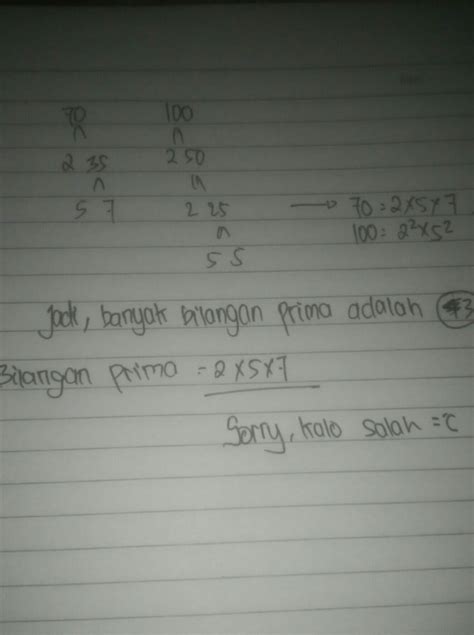 70 100
2 35 2 50
5 7 2 25 → 70 = 2×5×7
5 5 100 = 2²×5²
Jadi, banyak bilangan prima adalah 3
Bilangan prima = 2×5×7
Sorry, kalo salah =c